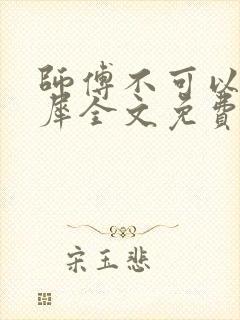 師傅不可以
犀全文免費
宋玉悲